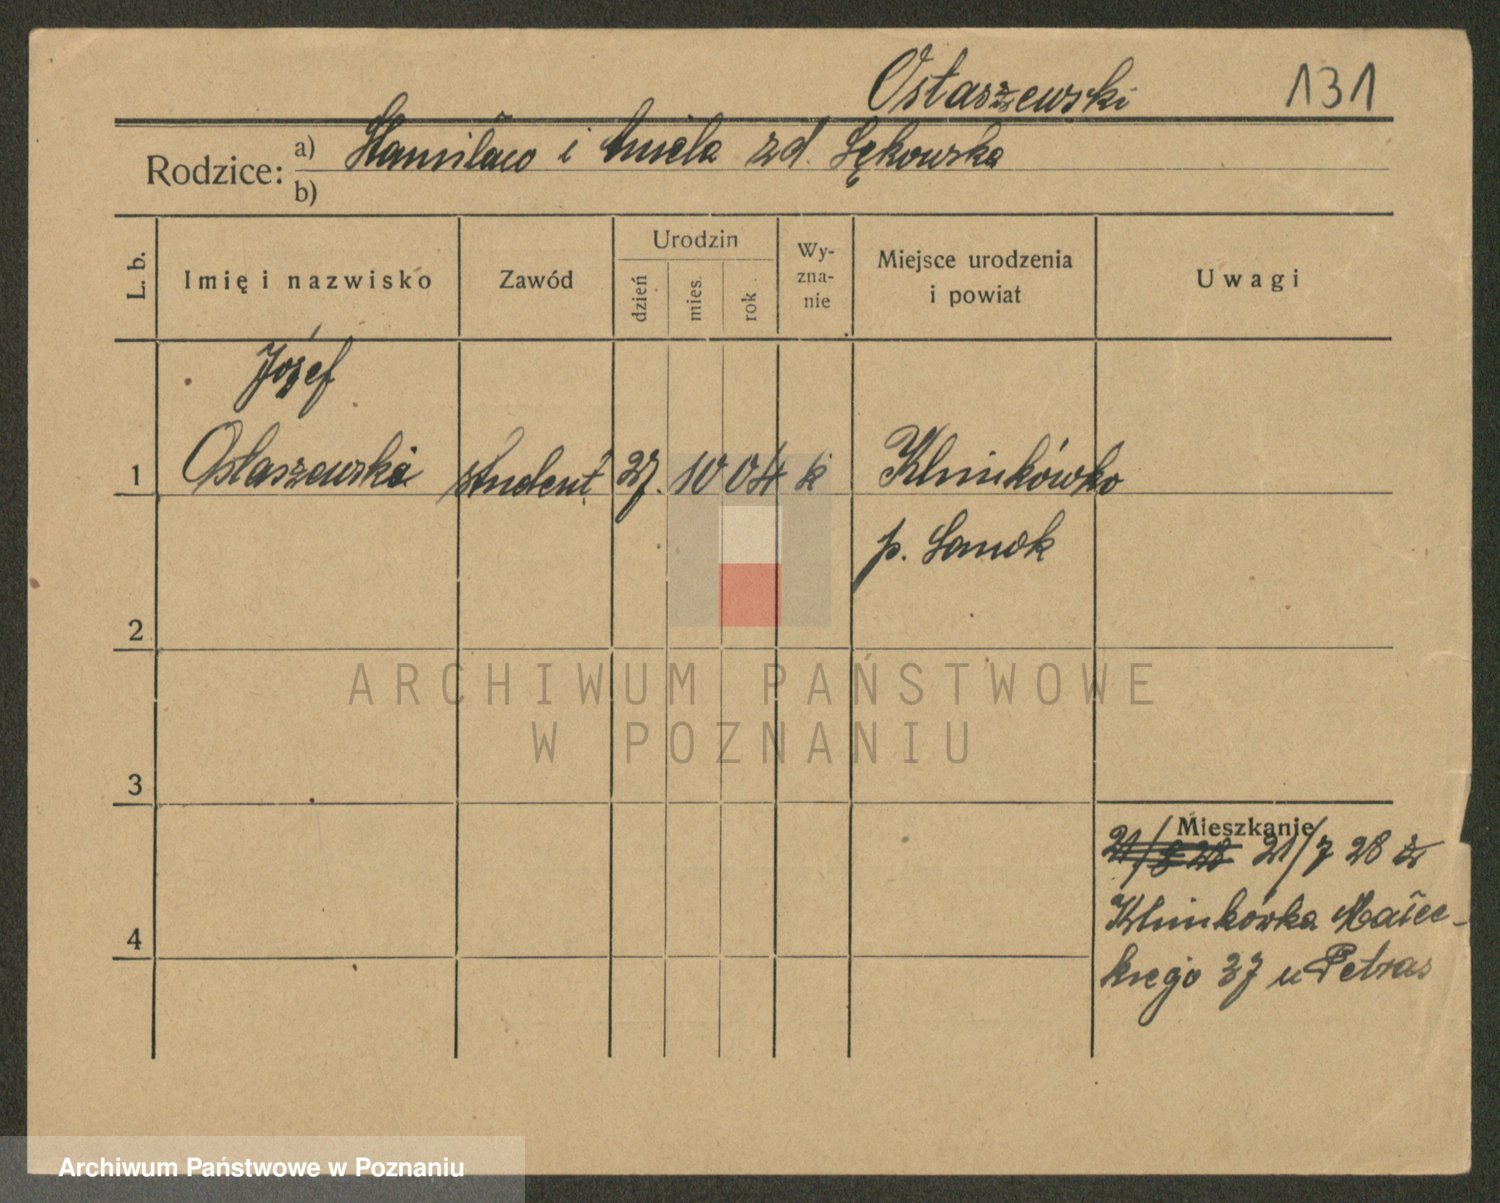 Ostaszewski 131
Rodzice: a) Stanisław i Aniela zd. Sękowska
b)
L. b. Imię i nazwisko Zawód Urodzin dzień mies. rok Wy-zna-nie Miejsce urodzenia i powiat Uwagi
Józef
1 Ostaszewski student 27. 10 04 k Klimkówko
p. Sanok
2
ARCHIWUM PAŃSTWOWE
W POZNANIU
3
Mieszkanie
21/8 28 21/7 28 z
4 Klimkówka Małec-
kiego 37 u Petras
Archiwum Państwowe w Poznaniu